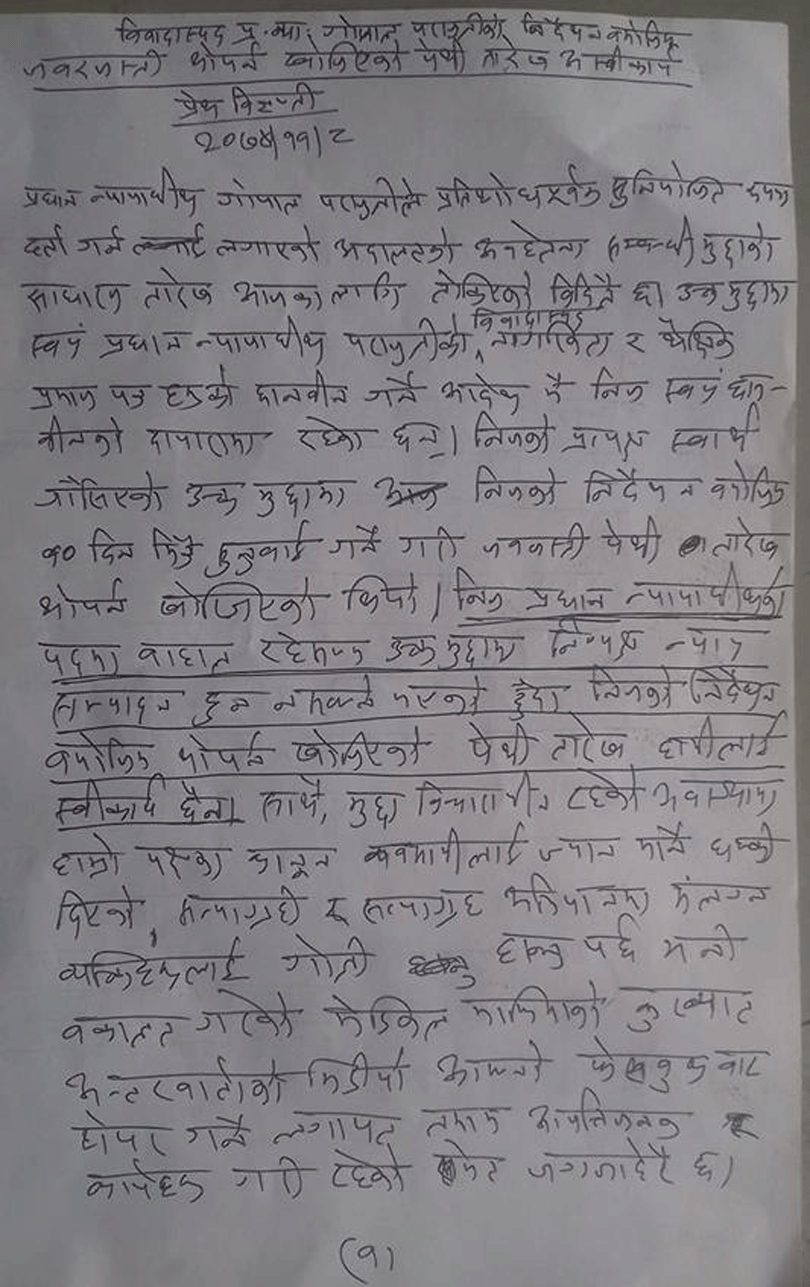 विवादास्पद प्र.न्या. गोपाल पराजुलीको निर्देशन बमोजिम
जवरजस्ती थोपर्न खोजिएको पेशी तारेख अस्वीकार्य
प्रेश विज्ञप्ती
२०७४|११|८
प्रधान न्यायाधीश गोपाल पराजुलीले प्रतिशोधपूर्वक सुनियोजित रुपमा
दर्ता गर्न लगाएको अदालतको अवहेलना सम्बन्धी मुद्दाको
साधारण तारेख आजका लागि तोकिएको विदितै छ। उक्त मुद्दामा
स्वयं प्रधान न्यायाधीश पराजुलीको विवादास्पद नागरिकता र शैक्षिक
प्रमाण पत्र हरुको छानवीन गर्ने आदेश भै निज स्वयं छान-
वीनको दायरामा रहेका छन्। निजको प्रत्यक्ष स्वार्थ
गाँसिएको उक्त मुद्दामा निजको निर्देशन बमोजिम
१० दिन भित्रै सुनुवाई गर्ने गरी जवरजस्ती पेशी तारेख
थोपर्न खोजिएको थियो। निज प्रधान न्यायाधीशको
पदमा वाहाल रहेसम्म उक्त मुद्दामा निष्पक्ष न्याय
सम्पादन हुन नसक्ने भएको हुँदा निजको निर्देशन
बमोजिम थोपर्न खोजिएको पेशी तारेख हामीलाई
स्वीकार्य छैन। साथै, मुद्दा विचाराधीन रहेको अवस्थामा
हाम्रो पक्षका कानून व्यवसायीलाई ज्यान मार्ने धम्की
दिएको, सत्याग्रही र सत्याग्रह अभियानमा संलग्न
व्यक्तिहरुलाई गोली हान्नु पर्छ भनी
वकालत गरेको मेडिकल माफियाको कुख्यात
अन्तरवार्ताको भिडीयो आफ्नो फेसबुक बाट
शेयर गर्ने लगायत तमाम आपत्तिजनक
कार्यहरु गरी रहेको जगजाहेरै छ।
(१)